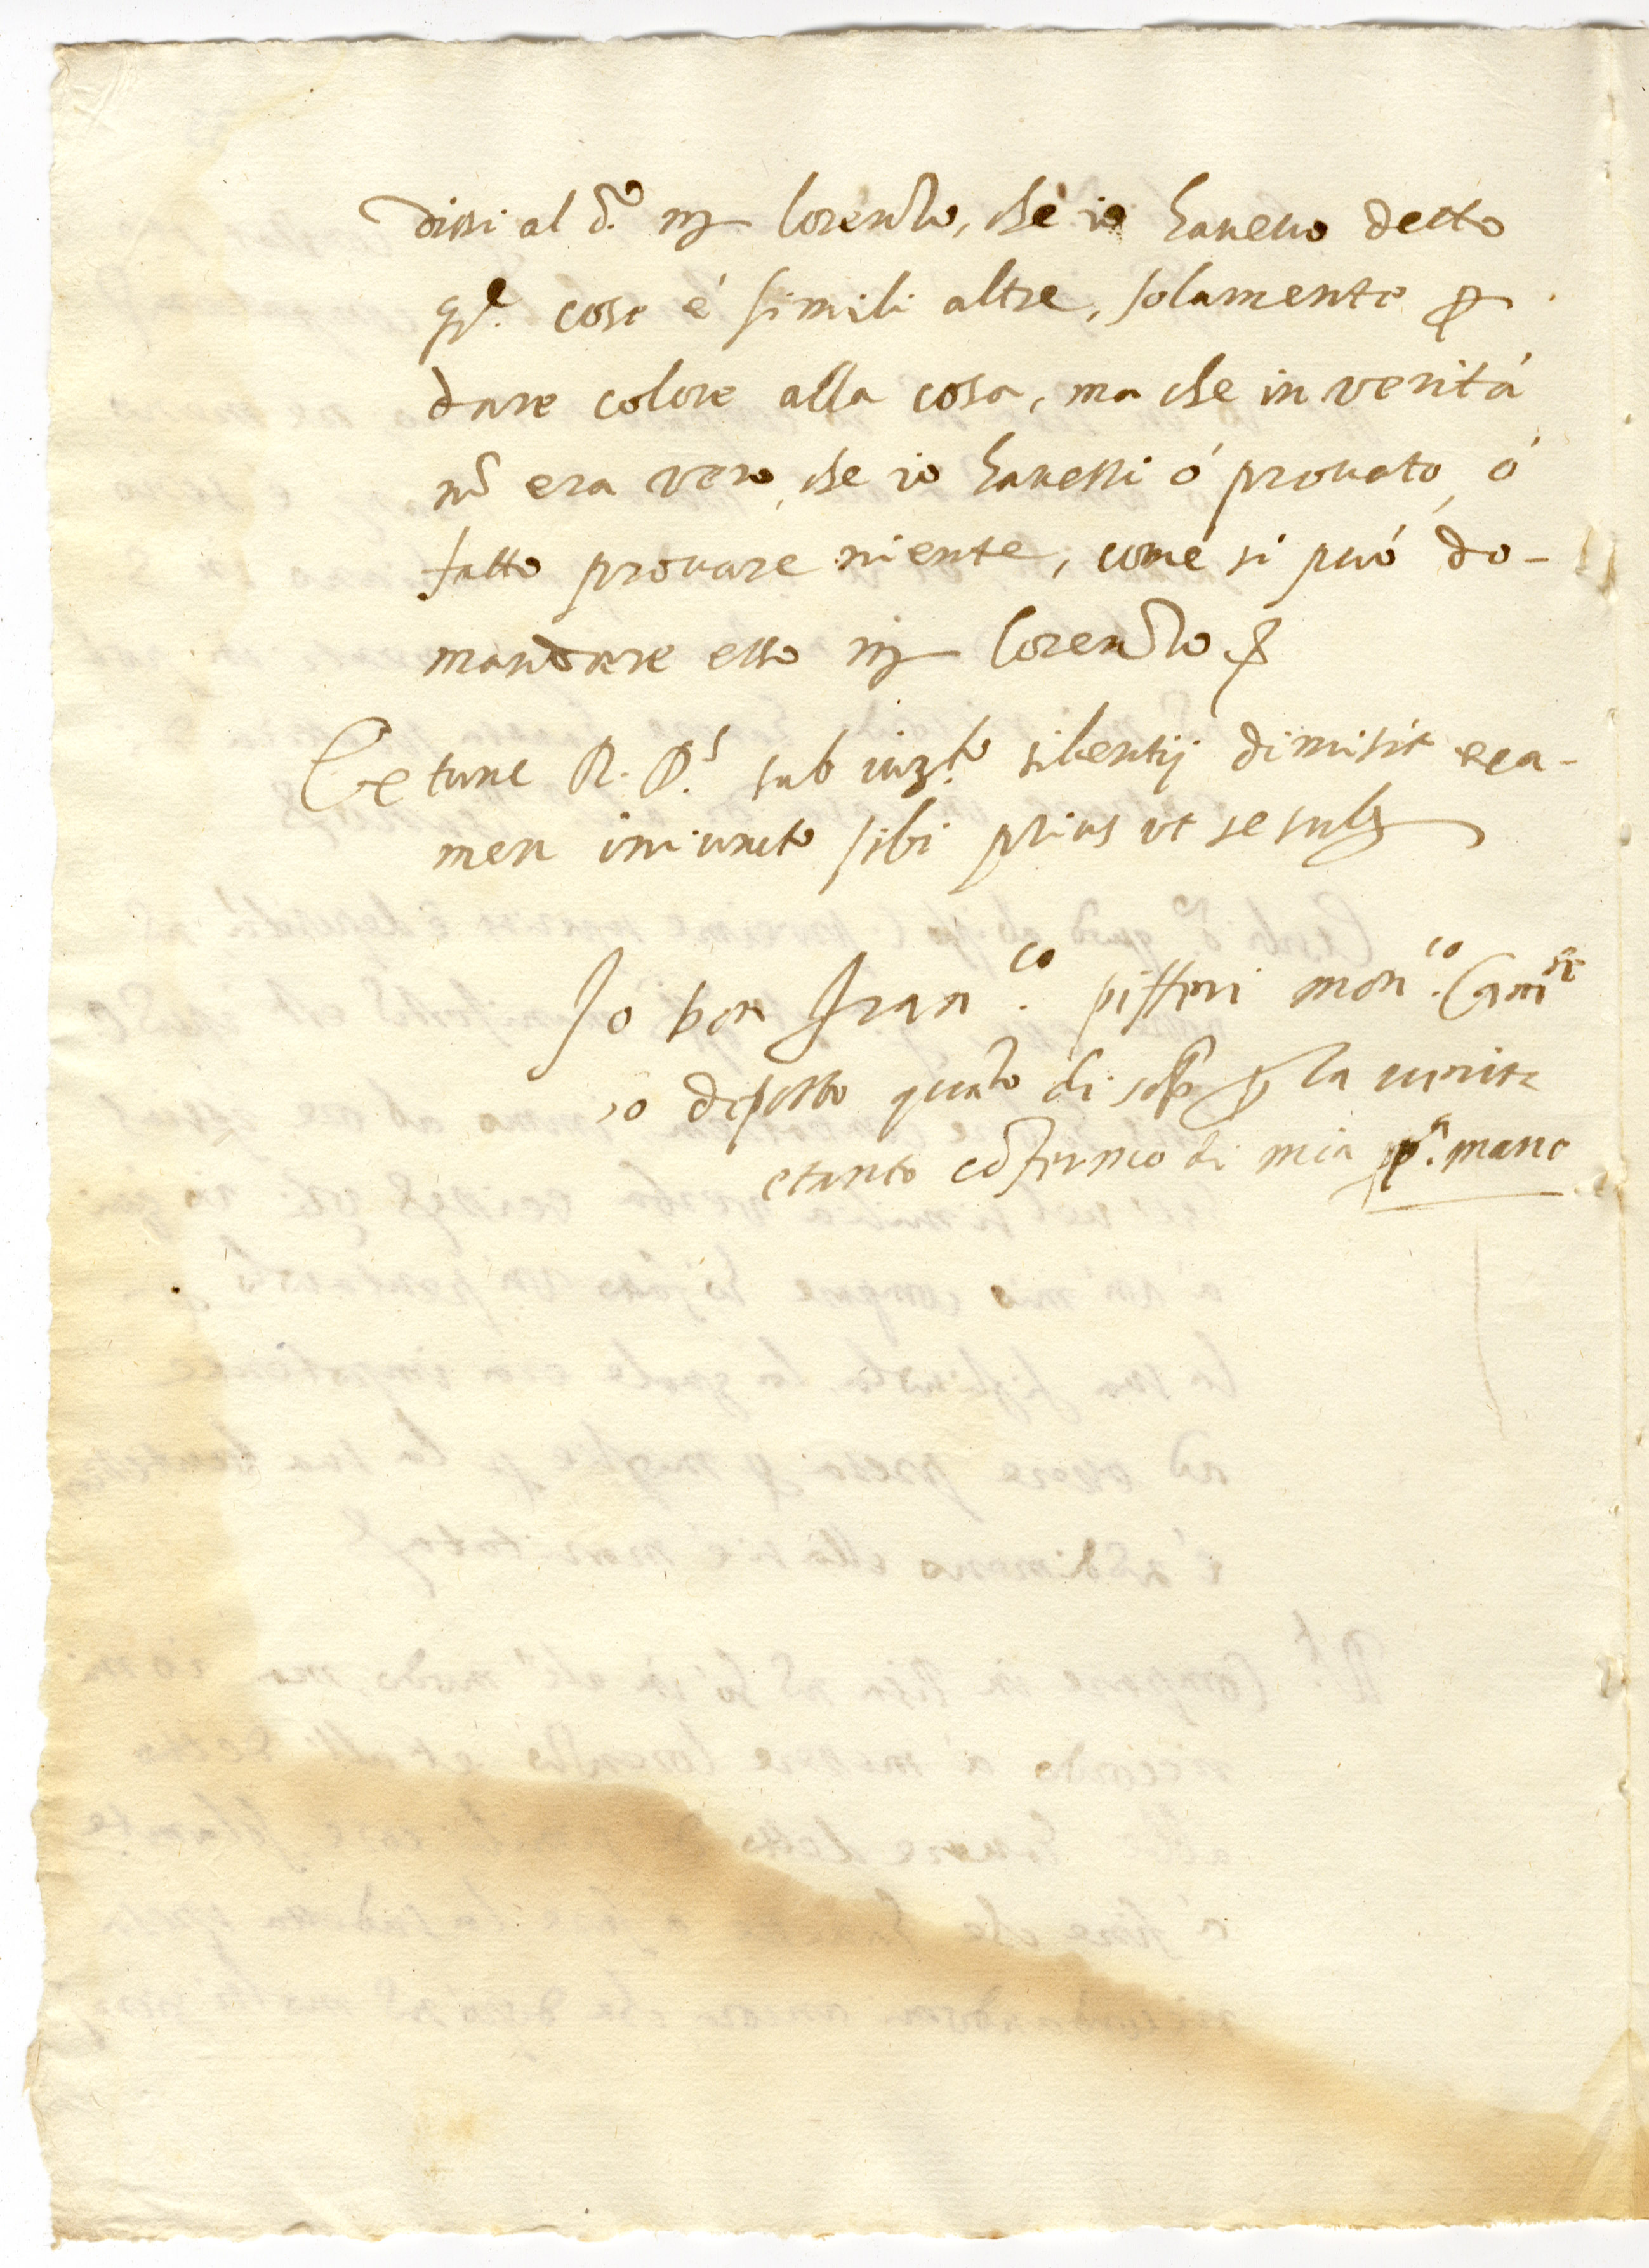 dissi al d.º m Lorenzo, che io haveuo detto
q.e cose é simili altre, solamente ꝑ
dare colore alla cosa, ma che in verità
nõ era vero, che io havessi ó prouato, ó
fatto prouare niente, come si può do-
mandare esso m Lorenzo
Et tunc R. D.s sub iur.to silentij dimisit exa-
men iniuncto sibi prius ut se sub
Io don Fran.co pifferi mon.co Cam
o deposto quãto di sop.ª ꝑ la uerita
et tanto cõfermo di mia pp.ª mano